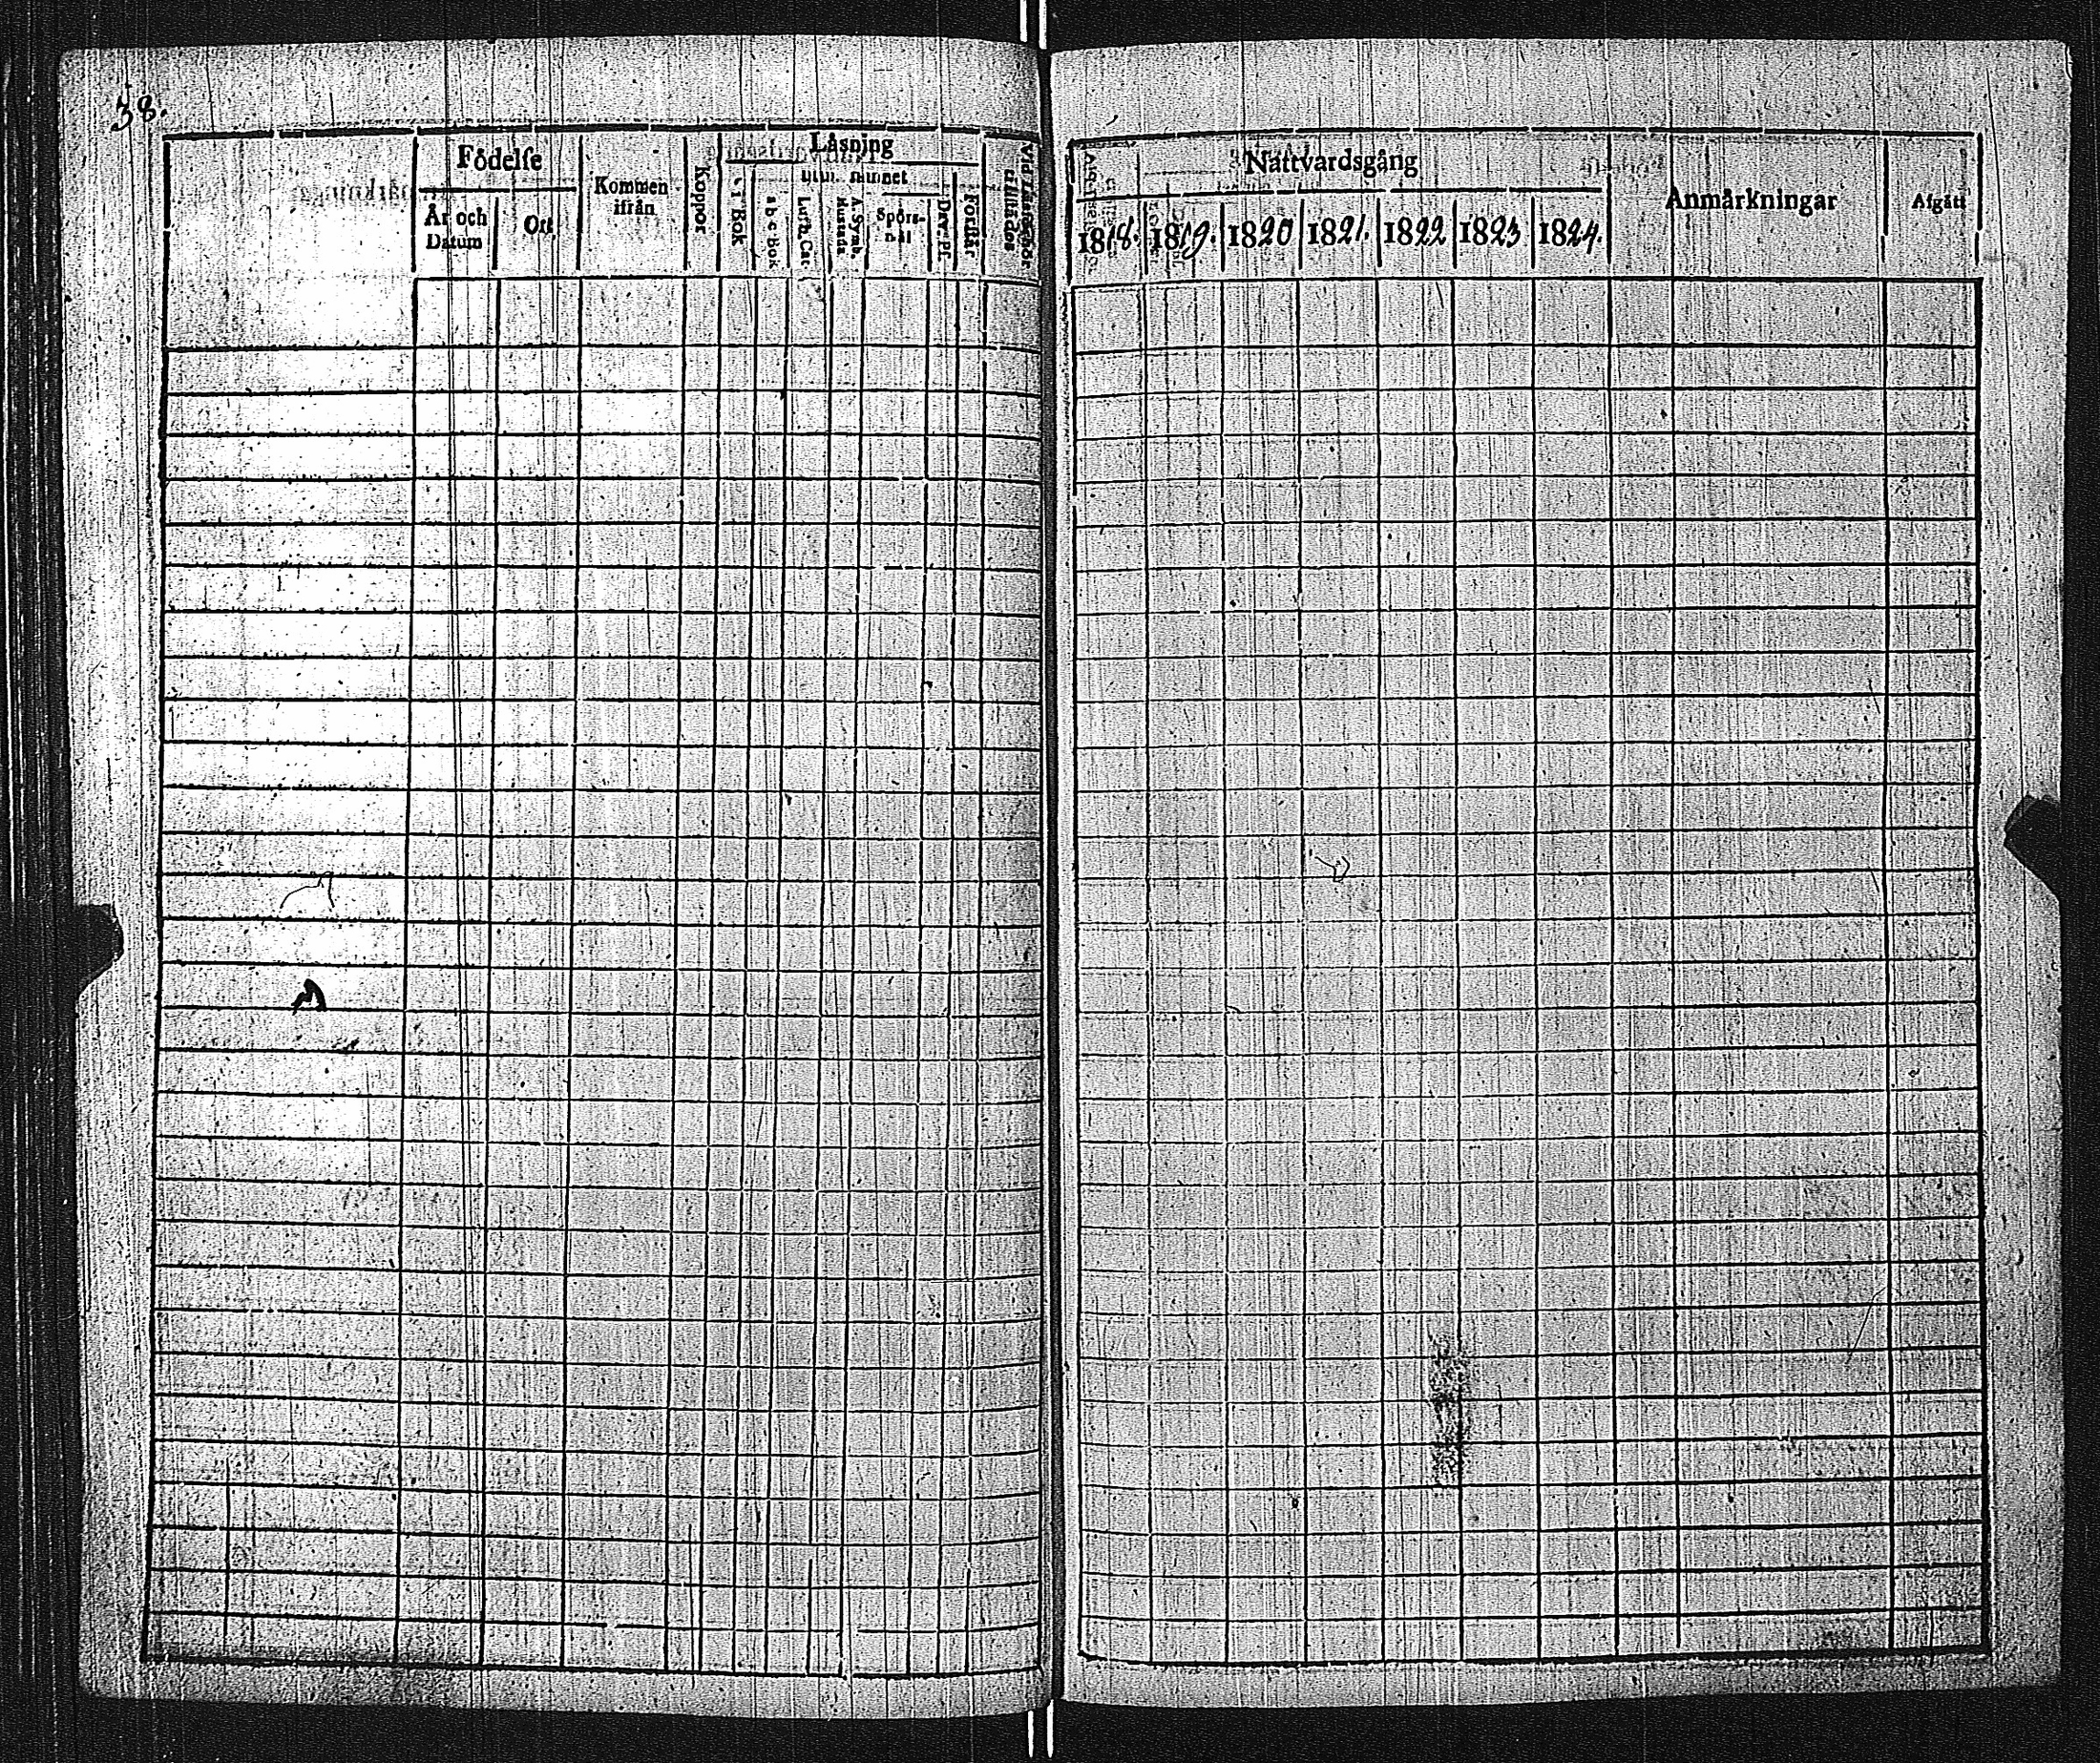 38.
Födelse
År och Datum
Ort
Kommen ifrån
Koppor
Läsning
utur minnet
Bok
a b c Bok
Luth. Cat.
A. Symb.
Hustafla
Spörs-mål
Dav. Ps.
Förstår
Nattvardsgång
1818. 1819. 1820 1821. 1822 1823 1824.
Anmärkningar
Afgått